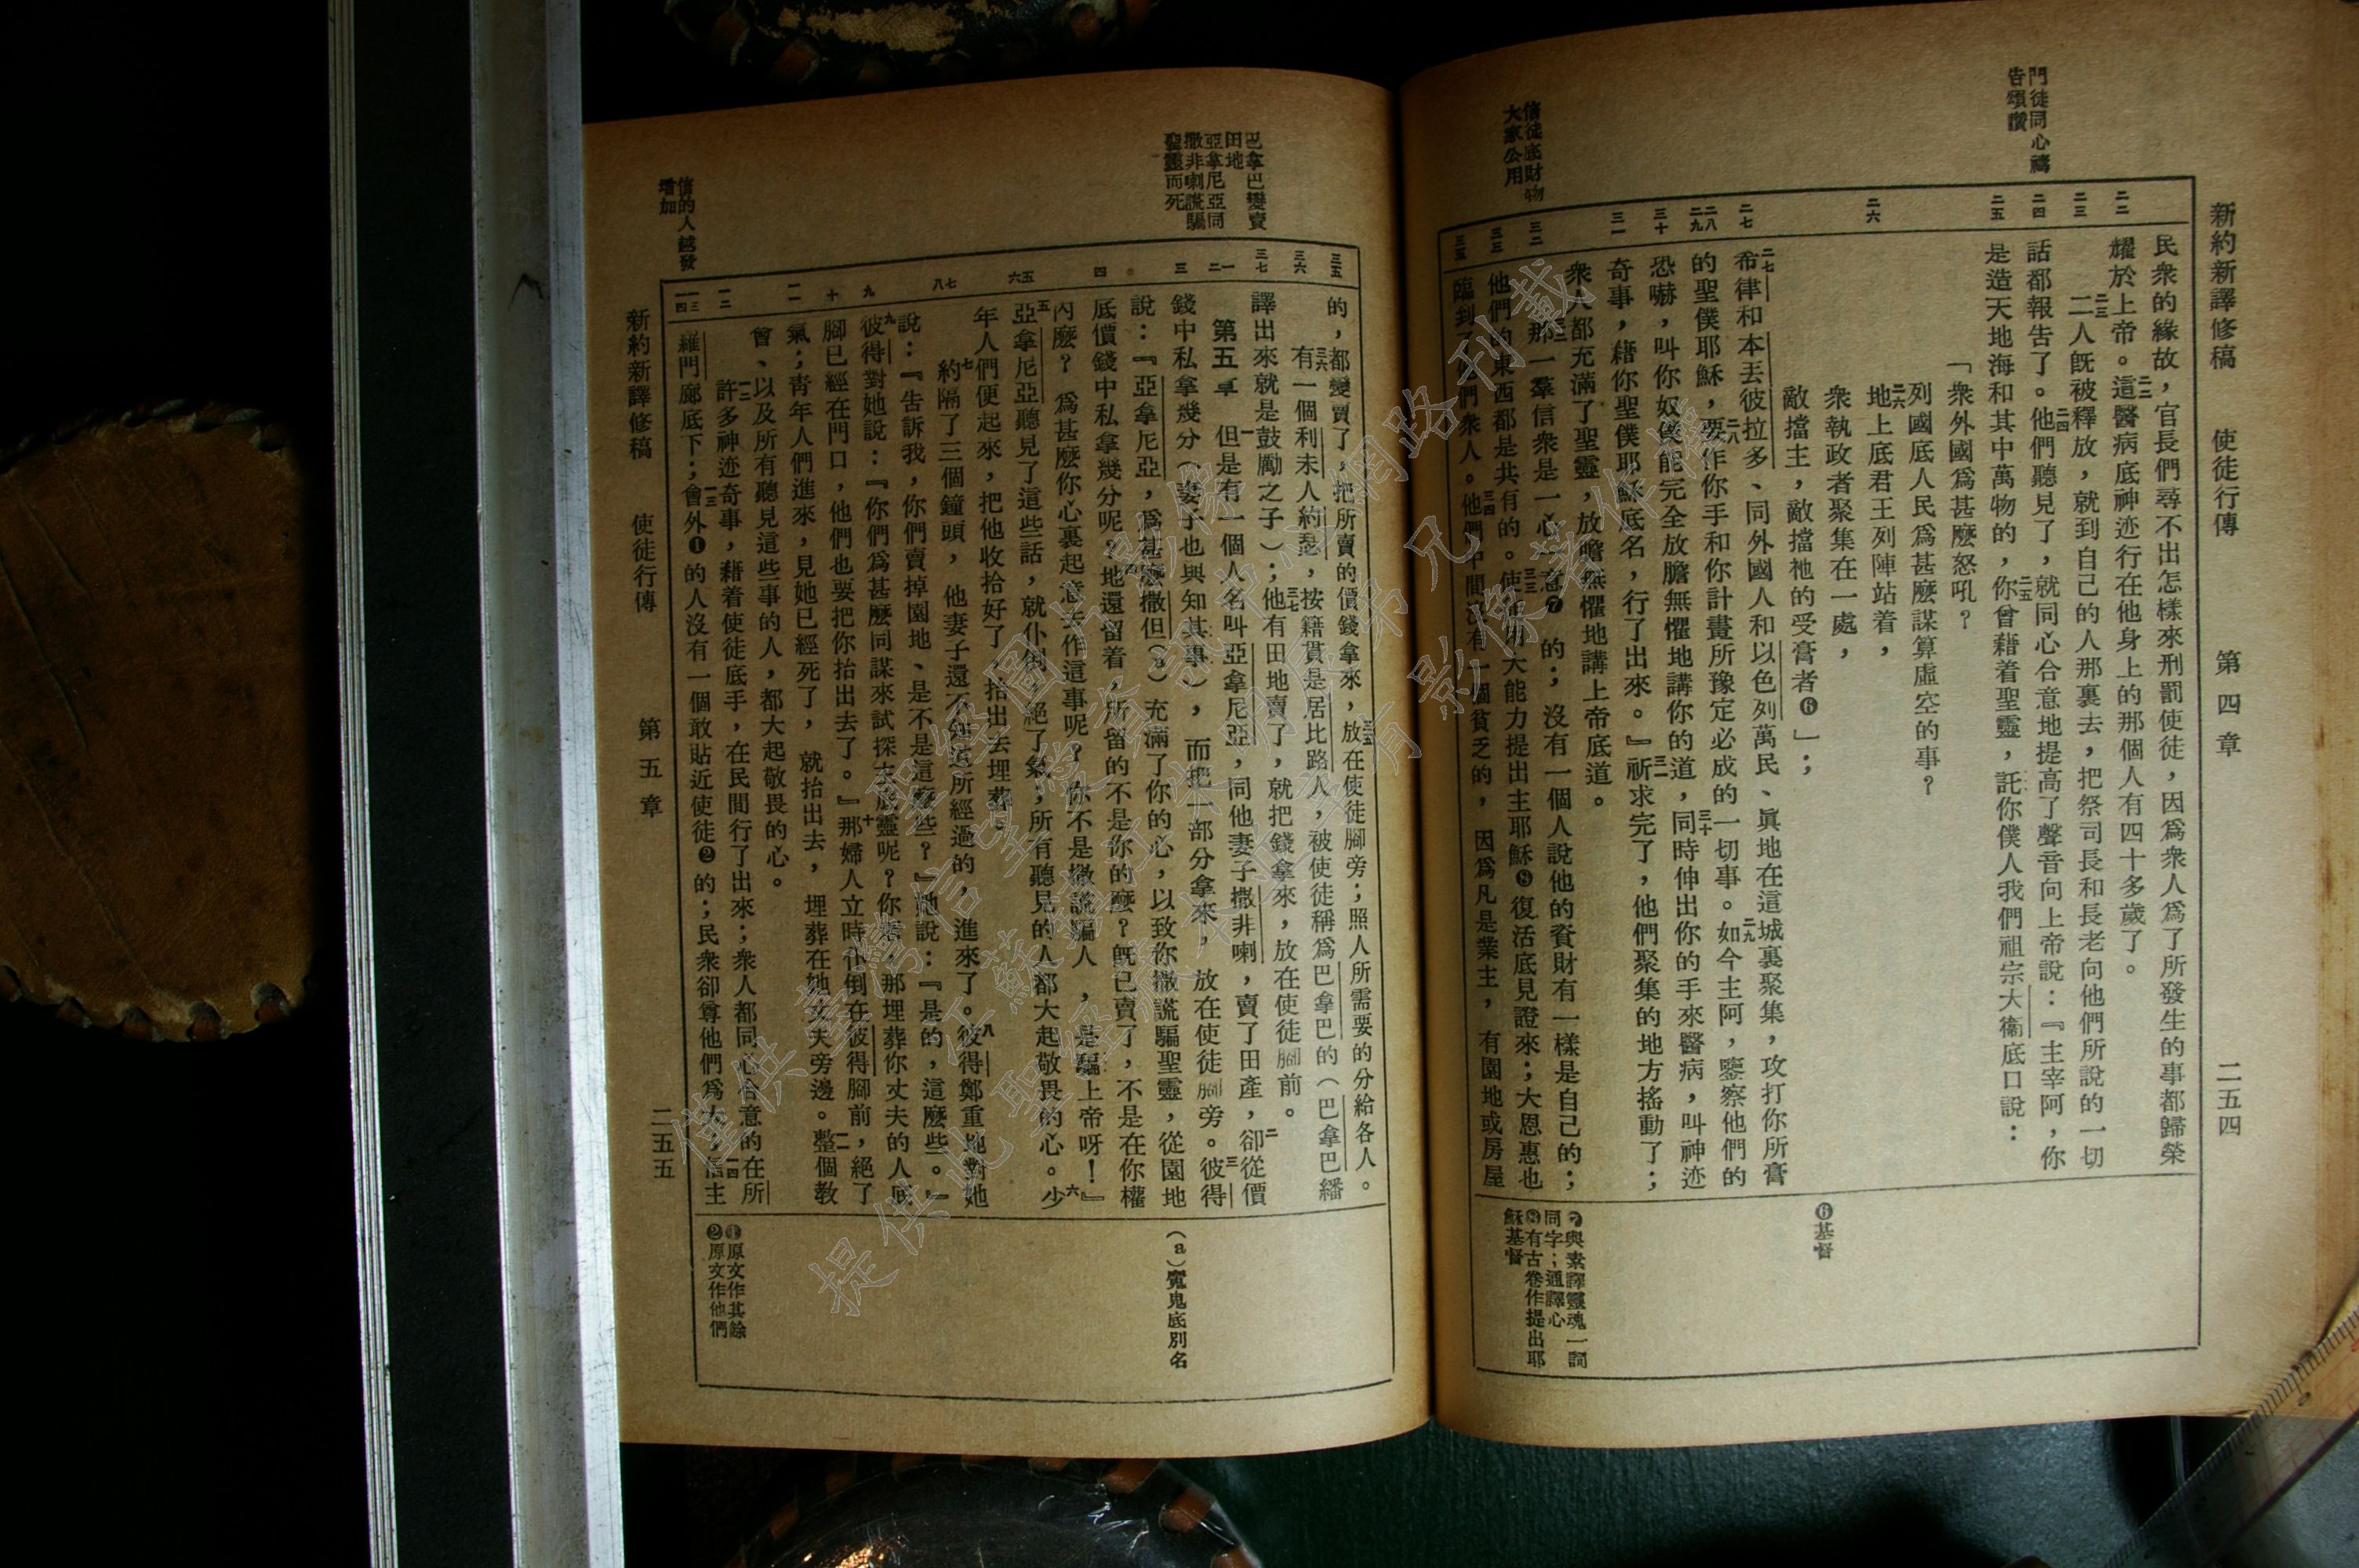 新約新譯修稿　使徒行傳　第四章　二五四
門徒同心禱
告頌讚
信徒底財物
大家公用
二二
二三
二四
二五
二六
二七
二八
二九
三十
三一
三二
三三
三五
民衆的緣故，官長們尋不出怎樣來刑罰使徒，因爲衆人爲了所發生的事都歸榮
耀於上帝。二二這醫病底神迹行在他身上的那個人有四十多歲了。
二三二人旣被釋放，就到自己的人那裏去，把祭司長和長老向他們所說的一切
話都報告了。二四他們聽見了，就同心合意地提高了聲音向上帝說：『主宰阿，你
是造天地海和其中萬物的，二五你曾藉着聖靈，託你僕人我們祖宗大衞底口說：
「衆外國爲甚麼怒吼？
列國底人民爲甚麼謀算虛空的事？
二六地上底君王列陣站着，
衆執政者聚集在一處，
敵擋主，敵擋祂的受膏者❻」；
二七希律和本丟彼拉多、同外國人和以色列萬民、眞地在這城裏聚集，攻打你所膏
的聖僕耶穌，二八要作你手和你計畫所豫定必成的一切事。二九如今主阿，鑒察他們的
恐嚇，叫你奴僕能完全放膽無懼地講你的道，三十同時伸出你的手來醫病，叫神迹
奇事，藉你聖僕耶穌底名，行了出來。』三一祈求完了，他們聚集的地方搖動了；
衆人都充滿了聖靈，放膽無懼地講上帝底道。
那一羣信衆是一心一意❼的；沒有一個人說他的資財有一樣是自己的；
他們的東西都是共有的。三三使徒用大能力提出主耶穌❽復活底見證來；大恩惠也
臨到了他們衆人。三四他們中間沒有一個貧乏的，因爲凡是業主，有園地或房屋
❻基督
❼與素譯靈魂一詞
同字；通譯心
❽有古卷作提出耶
穌基督
巴拿巴變賣
田地
亞拿尼亞同
撒非喇謊騙
聖靈而死
信的人越發
增加
三五
三六
三七
一
二
三
四
五
六
七
八
九
十
一一
一二
一三
一四
的，都變賣了，把所賣的價錢拿來，三五放在使徒腳旁；照人所需要的分給各人。
三六有一個利未人約瑟，按籍貫是居比路人，被使徒稱爲巴拿巴的（巴拿巴繙
譯出來就是鼓勵之子）；三七他有田地賣了，就把錢拿來，放在使徒腳前。
第五章　一但是有一個人名叫亞拿尼亞，同他妻子撒非喇，賣了田產，二卻從價
錢中私拿幾分（妻子也與知其事），而把一部分拿來，放在使徒腳旁。三彼得
說：『亞拿尼亞，爲甚麼撒但（a）充滿了你的心，以致你撒謊騙聖靈，從園地
底價錢中私拿幾分呢？四地還留着，所留的不是你的麼？旣已賣了，不是在你權
內麼？爲甚麼你心裏起意去作這事呢？你不是撒謊騙人，是騙上帝呀！』
五亞拿尼亞聽見了這些話，就仆倒，絕了氣；所有聽見的人都大起敬畏的心。六少
年人們便起來，把他收拾好了，抬出去埋葬。
七約隔了三個鐘頭，他妻子還不知道所經過的，進來了。八彼得鄭重地對她
說：『告訴我，你們賣掉園地、是不是這麼些？』她說：『是的，這麼些。』
九彼得對她說：『你們爲甚麼同謀來試探主底靈呢？你看，那埋葬你丈夫的人底
腳已經在門口，他們也要把你抬出去了。』十那婦人立時仆倒在彼得腳前，絕了
氣；青年人們進來，見她已經死了，就抬出去，埋葬在她丈夫旁邊。一一整個教
會、以及所有聽見這些事的人，都大起敬畏的心。
一二許多神迹奇事，藉着使徒底手，在民間行了出來；衆人都同心合意的在所
羅門廊底下；一三會外❶的人沒有一個敢貼近使徒❷的；民衆卻尊他們爲大，一四信主
（a）魔鬼底別名
❶原文作其餘
❷原文作他們
新約新譯修稿　使徒行傳　第五章　二五五